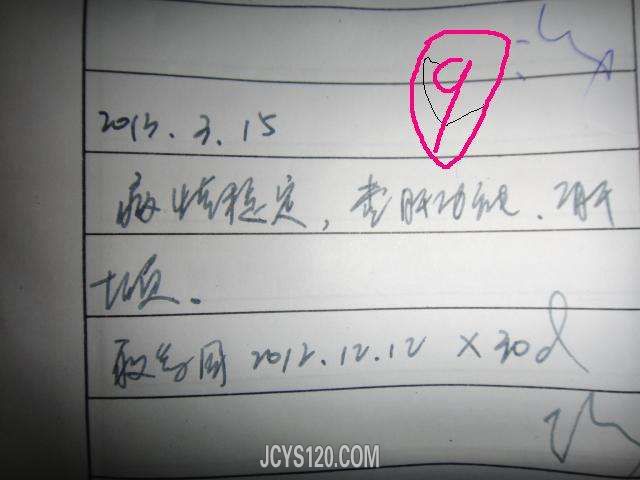 9
2013.3.15
病情稳定，查肝功能、乙肝
十项。
取药同 2012.12.12 × 30d
JCYS120.COM